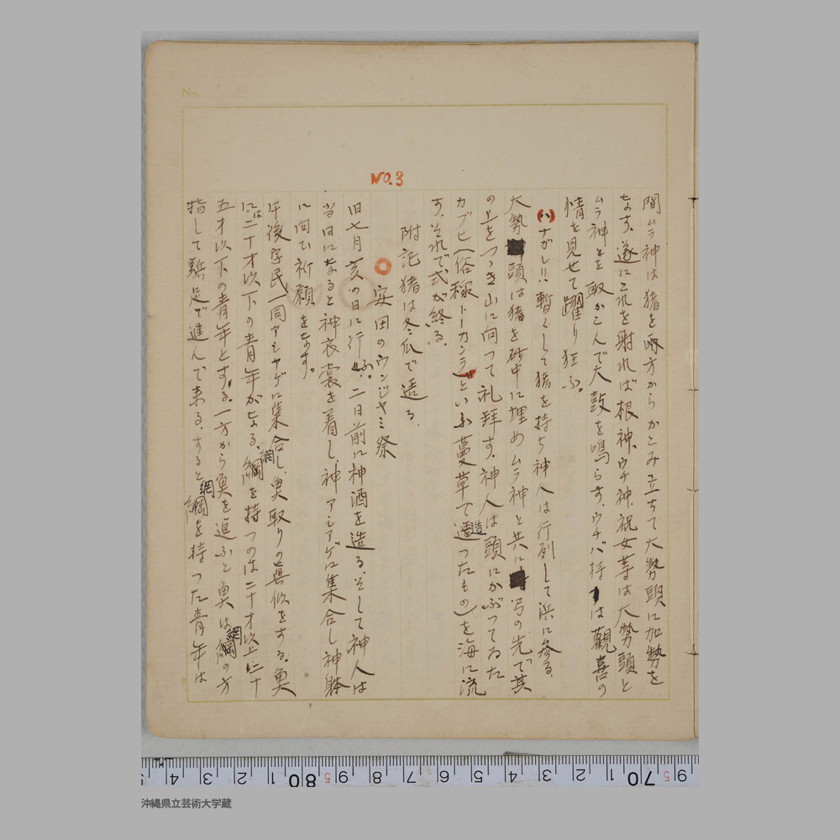 No.
No.3
間ムラ神は猪を両方からかこみ立ちて大勢頭に加勢を
なす、遂にこれを射れば根神、ウチ神、祝女等は大勢頭と
ムラ神とを取かこんで大鼓を鳴らす、ウチバ持は観喜の
情を見せて躍り狂ふ。
(ハ)ナガレ!! 暫くして猪を持ち神人は行列して浜に参る、
大勢頭は猪を砂中に埋めムラ神と共に弓の先で其
の上をつゝき山に向つて礼拝す、神人は頭にかぶつてゐた
カブヒ(俗称トーカンラといふ蔓草で造つたもの)を海に流
す、それで式が終る、
附記猪は冬瓜で造る、
○安田のウンジャミ祭
旧七月亥の日に行ふ。二日前に神酒を造る、そして神人は
当日になると神衣裳を着し、神アシアゲに集合し神躰
に向ひ祈願をなす。
午後字民一同アシャゲに集合し、魚取りの真似をする、魚
には二十才以下の青年がなる、網を持つのは二十才以上二十
五才以下の青年とする。一方から魚を追ふと魚は網の方
指して駈足で進んで来る、すると網を持つた青年は
9 70 1 2 3 4 5 6 7 8 9 80 1 2 3 4 5
沖縄県立芸術大学蔵